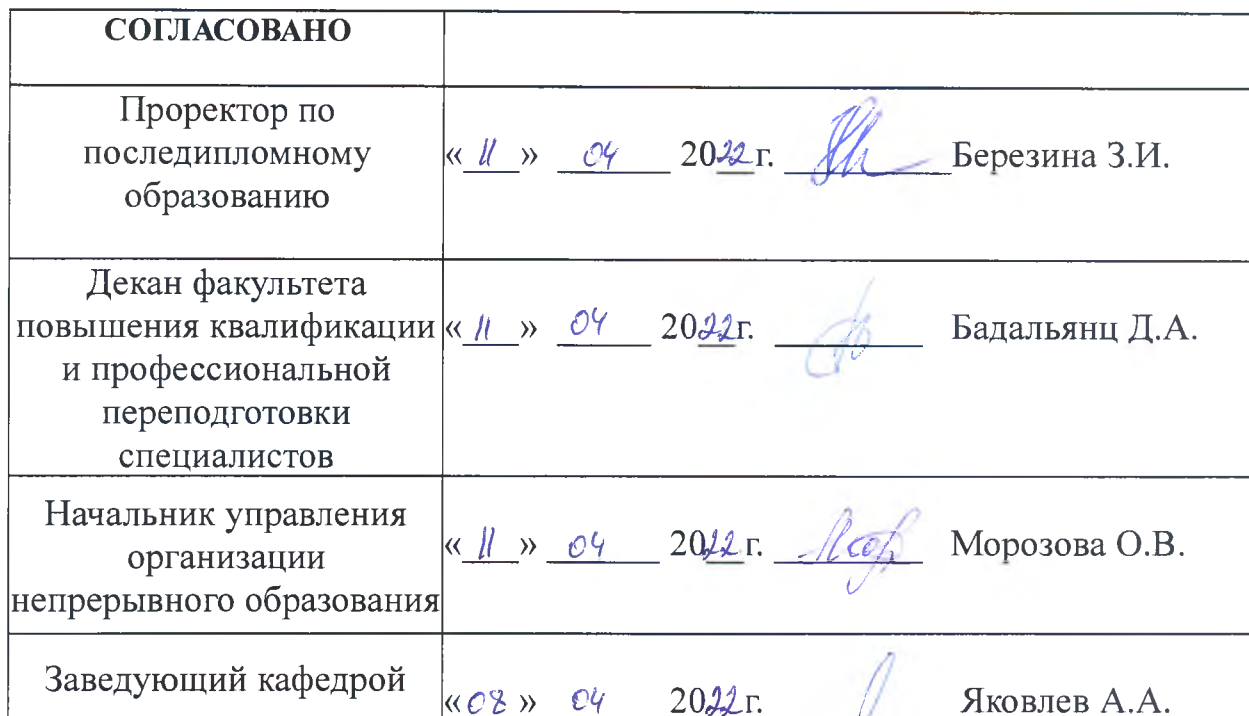 СОГЛАСОВАНО
Проректор по
последипломному
образованию
« 11 » 04 2022г. Березина З.И.
Декан факультета
повышения квалификации
и профессиональной
переподготовки
специалистов
« 11 » 04 2022г. Бадальянц Д.А.
Начальник управления
организации
непрерывного образования
« 11 » 04 2022 г. Морозова О.В.
Заведующий кафедрой
«08 » 04 2022г. Яковлев А.А.